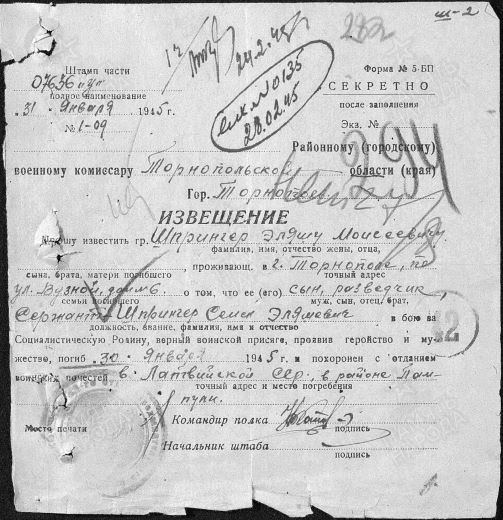 ш-2
282
24.2.45
Штамп части
07636 "У"
полное наименование
31. Января 1945 г.
№ 1-09
вх. № 0135
28.02.45
Форма № 5-БП
СЕКРЕТНО
после заполнения
Экз. №
294
Районному (городскому)
военному комиссару Торнопольской области (края)
Гор. Торнополь
ИЗВЕЩЕНИЕ
Прошу известить гр. Шпрингер Эляшу Моисеевичу
фамилия, имя, отчество жены, отца,
проживающ. в г. Торнополе, по
сына, брата, матери погибшего точный адрес
ул. Вузной, дом 6. о том, что ее (его) сын, разведчик,
семьи погибшего муж, сын, отец, брат,
Сержант Шпрингер Семен Эляшевич в бою за
должность, звание, фамилия, имя и отчество
Социалистическую Родину, верный воинской присяге, проявив геройство и му-
жество, погиб 30 Января 1945 г. и похоронен с отданием
воинских почестей в Латвийской ССР, в районе Лам-
точный адрес и место погребения
пупи.
Командир полка
подпись
Место печати
Начальник штаба
подпись
42